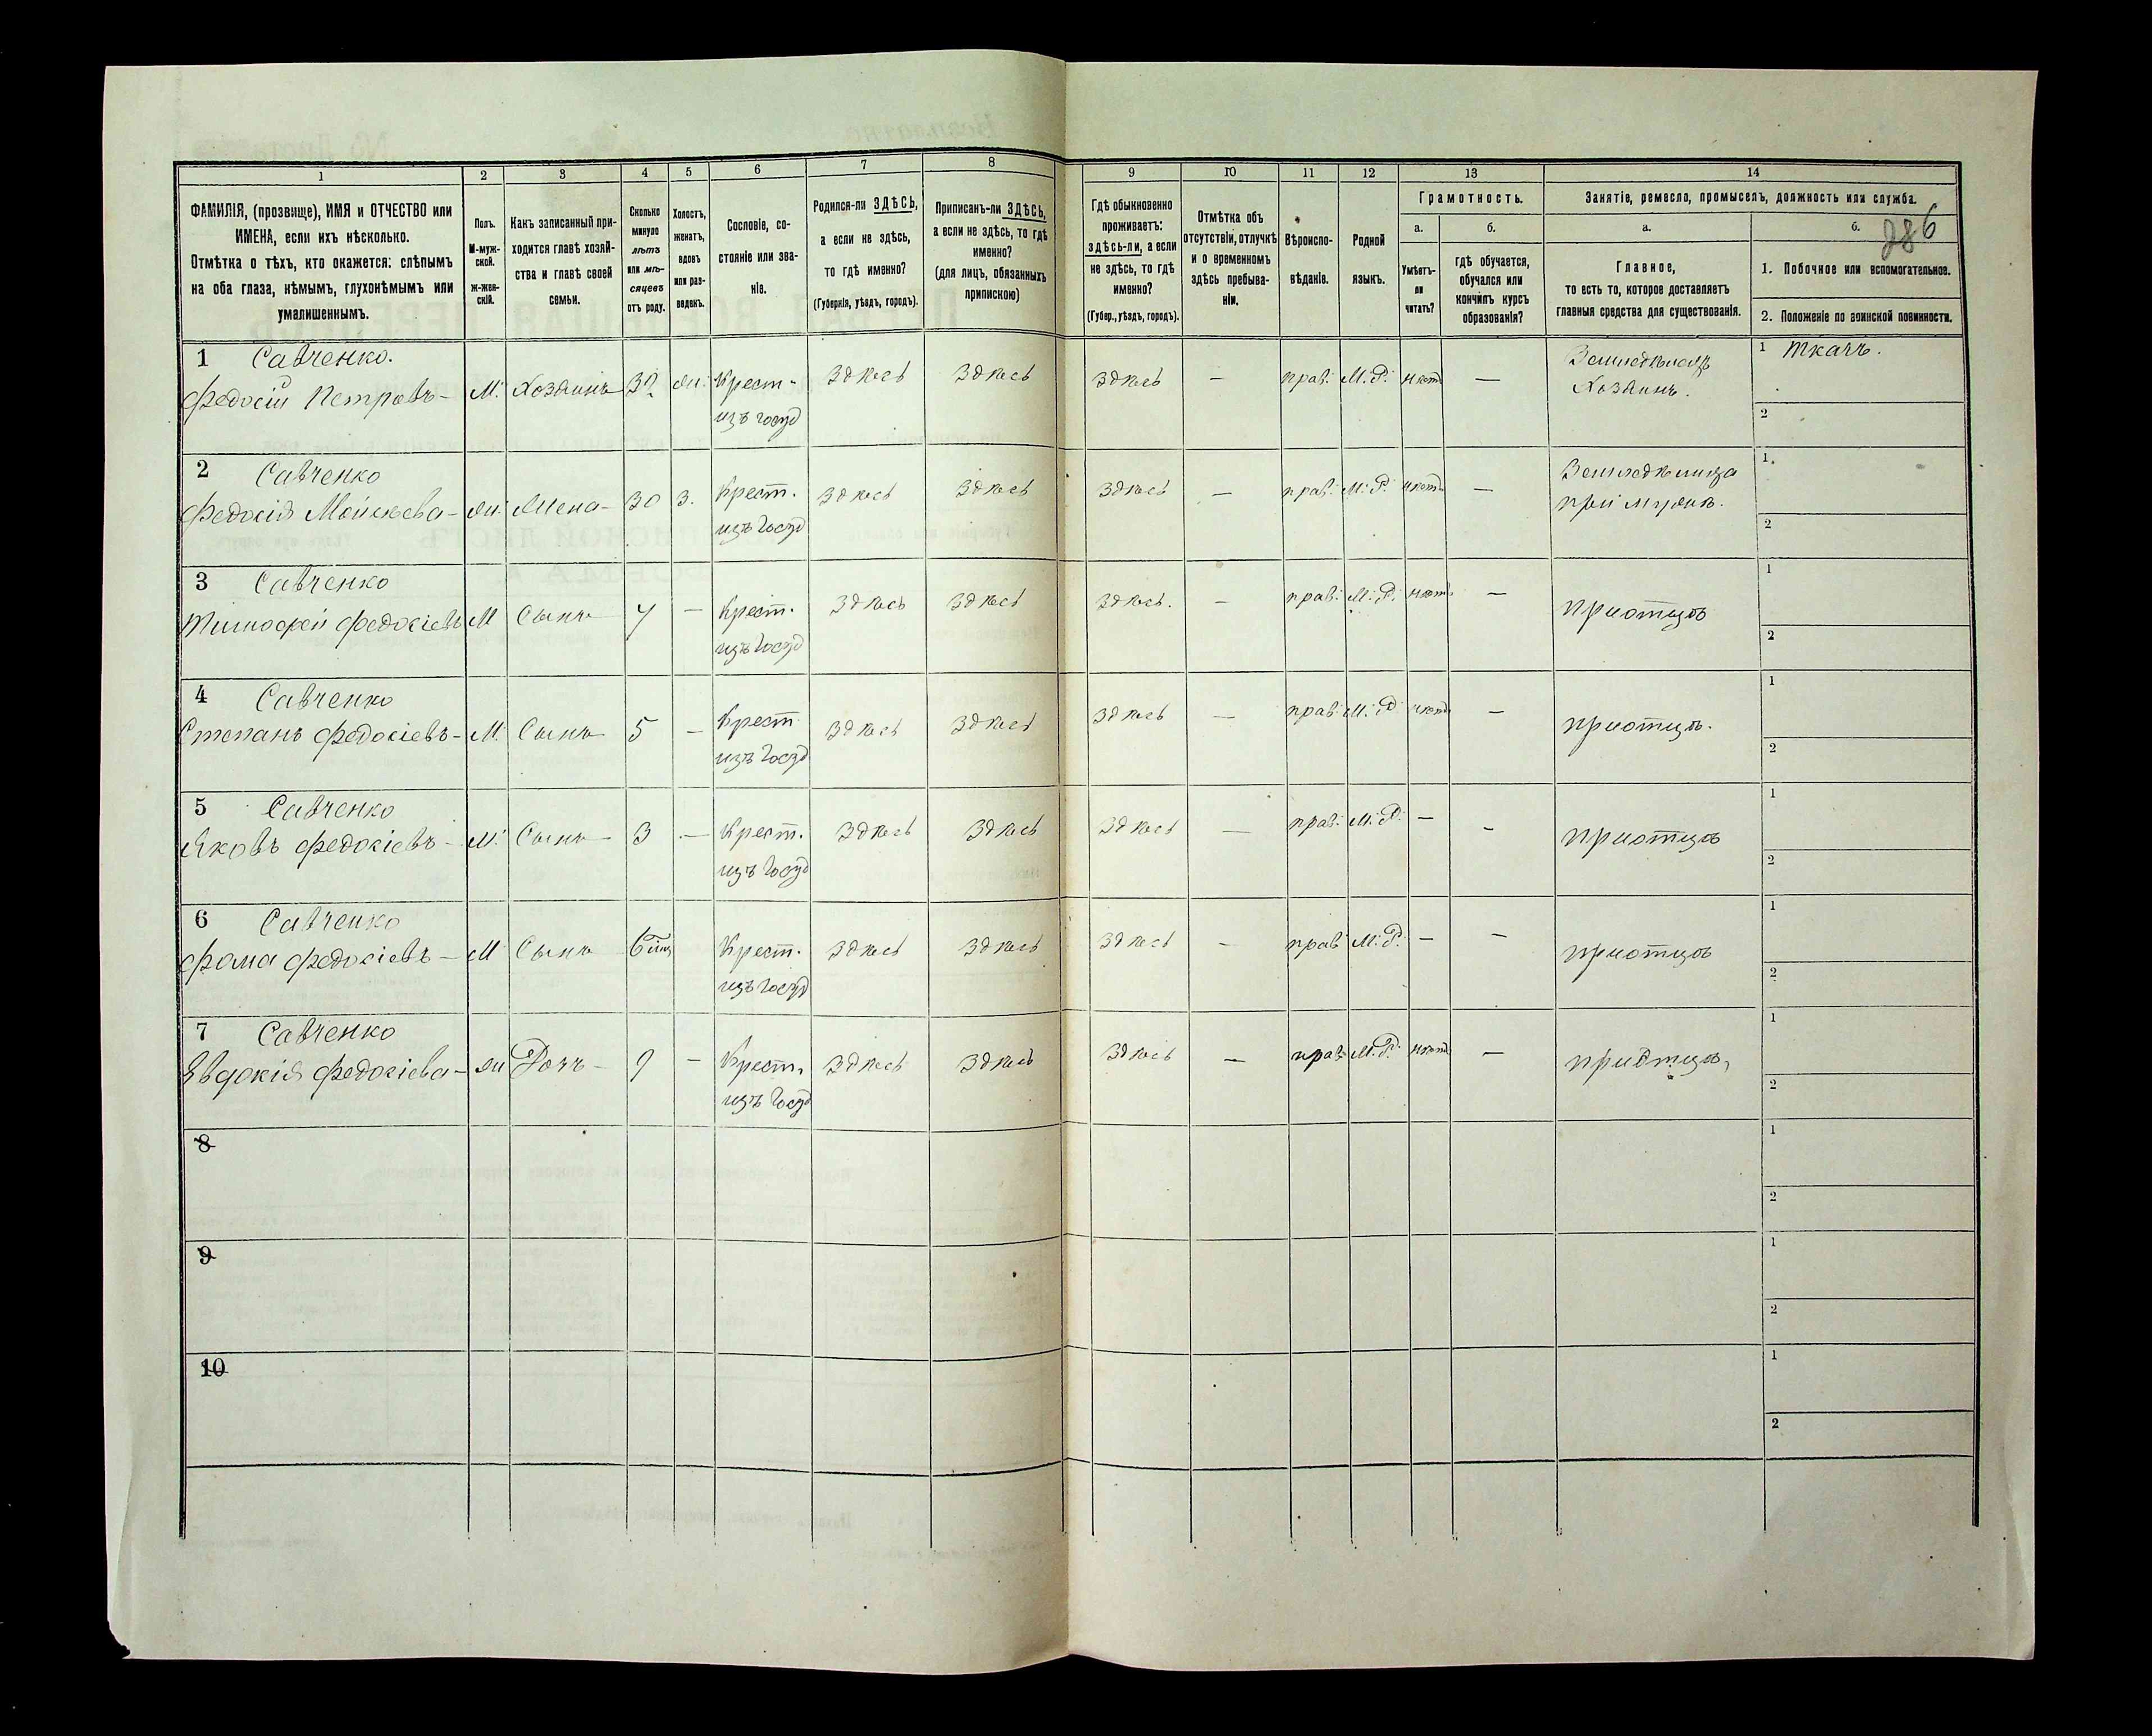 286
1 2 3 4 5 6 7 8 9 10 11 12 13 14
ФАМИЛІЯ, (прозвище), ИМЯ и ОТЧЕСТВО или
ИМЕНА, если ихъ нѣсколько.
Отмѣтка о тѣхъ, кто окажется: слѣпымъ
на оба глаза, нѣмымъ, глухонѣмымъ или
умалишеннымъ.
Полъ.
М-муж-
ской.
ж-жен-
скій.
Какъ записанный при-
ходится главѣ хозяй-
ства и главѣ своей
семьи.
Сколько
минуло
лѣтъ
или мѣ-
сяцевъ
отъ роду.
Холостъ,
женатъ,
вдовъ
или раз-
веденъ.
Сословіе, со-
стояніе или зва-
ніе.
Родился-ли ЗДѢСЬ,
а если не здѣсь,
то гдѣ именно?
(Губернія, уѣздъ, городъ).
Приписанъ-ли ЗДѢСЬ,
а если не здѣсь, то гдѣ
именно?
(для лицъ, обязанныхъ
припискою)
Гдѣ обыкновенно
проживаетъ:
здѣсь-ли, а если
не здѣсь, то гдѣ
именно?
(Губер., уѣздъ, городъ).
Отмѣтка объ
отсутствіи, отлучкѣ
и о временномъ
здѣсь пребыва-
ніи.
Вѣроиспо-
вѣданіе.
Родной
языкъ.
Грамотность.
а.
Умѣетъ-
ли
читать?
б.
гдѣ обучается,
обучался или
кончилъ курсъ
образованія?
Занятіе, ремесло, промыселъ, должность или служба.
а.
Главное,
то есть то, которое доставляетъ
главныя средства для существованія.
б.
1. Побочное или вспомогательное.
2. Положеніе по воинской повинности.
1 Савченко.
Федосій Петровъ- М. Хозяинъ жи. Крест- Здѣсь Здѣсь Здѣсь - прав. М.Р. нѣтъ - Земледѣлецъ 1 Ткачъ.
изъ госуд Хозяинъ. 2
2 Савченко
Федосія Мойсѣева- жи. Жена- 30 З. Крест. Здѣсь Здѣсь Здѣсь - прав. М.Р. нѣтъ - Земледѣлица 1
изъ госуд при мужѣ. 2
3 Савченко
Тимофей Федосіевъ М Сынъ 7 - Крест. Здѣсь Здѣсь Здѣсь. - прав. М.Р. нѣтъ - при отцѣ 1
изъ госуд 2
4 Савченко
Степанъ Федосіевъ- М. Сынъ 5 - Крест Здѣсь Здѣсь Здѣсь - прав. М.Р нѣтъ - при отцѣ. 1
изъ госуд 2
5 Савченко
Яковъ Федосіевъ- М. Сынъ- 3 - Крест. Здѣсь Здѣсь Здѣсь - прав. М.Р. - - при отцѣ 1
изъ госуд 2
6 Савченко
Фома Федосіевъ- М Сынъ Крест. Здѣсь Здѣсь Здѣсь - прав М.Р. - - при отцѣ 1
изъ госуд 2
7 Савченко
Явдокія Федосіева- жи Дочь- 9 - Крест. Здѣсь Здѣсь Здѣсь - прав. М.Р. нѣтъ - при отцѣ, 1
изъ госуд 2
8 1
2
9 1
2
10 1
2